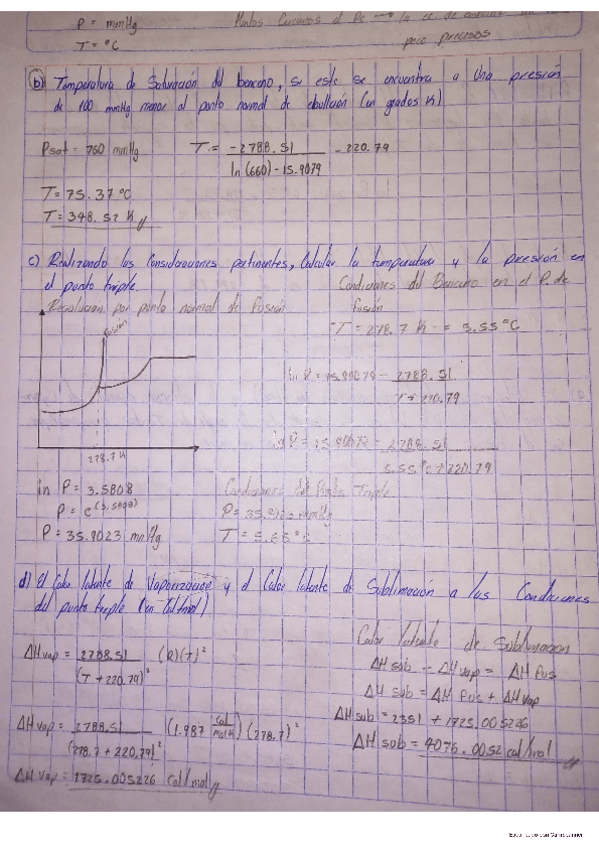 P = mmHg
T = °C
Puntos Cercanos al Pc → la ec. de antoine
poco precisos
b) Temperatura de Saturación del benceno, si este se encuentra a Una presión
de 100 mmHg menor al punto normal de ebullición (en grados K)
Psat = 760 mmHg
T = -2788.51 / ln(660) - 15.9079 - 220.79
T = 75.37 °C
T = 348.52 K
c) Realizando las Consideraciones pertinentes, Calcular la temperatura y la presión en
el punto triple.
Condiciones del Benceno en el P. de
Fusión
Resolución por punto normal de Fusión
T = 278.7 K = 5.55 °C
Fusión
278.7 K
ln P = 15.90079 - 2788.51 / T + 220.79
ln P = 15.90079 - 2788.51 / 5.55 °C + 220.79
ln P = 3.5808
P = e^(3.5808)
P = 35.9023 mmHg
Condiciones del Punto Triple
P = 35.9023 mmHg
T = 5.55 °C
d) El Calor latente de Vaporización y el Calor latente de Sublimación a las Condiciones
del punto treple (en Cal/mol)
ΔHvap = 2788.51 / (T + 220.79)² (R)(T)²
ΔHvap = 2788.51 / (278.7 + 220.79)² (1.987 cal/molK)(278.7)²
ΔHvap = 1725.005226 cal/mol
Calor Latente de Sublimación
ΔHsub - ΔHvap = ΔHfus
ΔHsub = ΔHfus + ΔHvap
ΔHsub = 2351 + 1725.005226
ΔHsub = 4076.0052 cal/mol